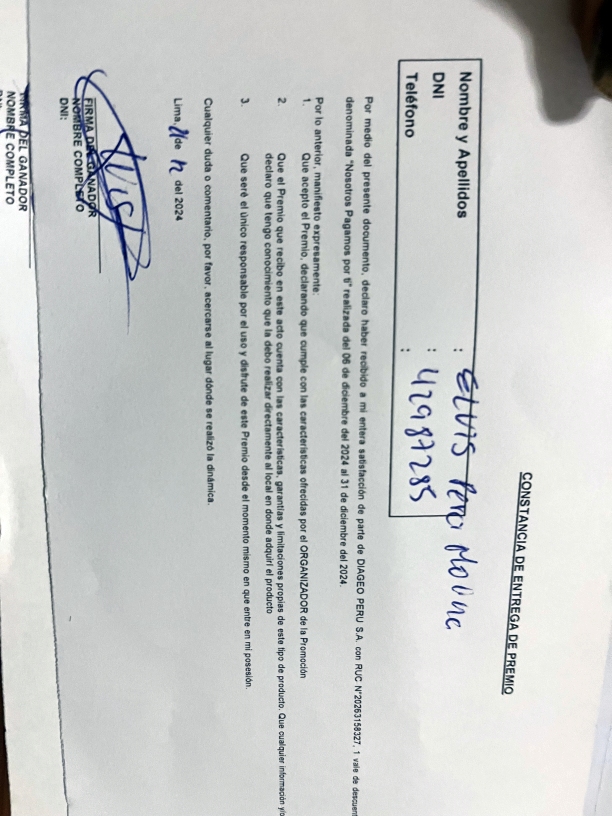 CONSTANCIA DE ENTREGA DE PREMIO
Nombre y Apellidos : ELVIS Perez Molina
DNI : 42987285
Teléfono :
Por medio del presente documento, declaro haber recibido a mi entera satisfacción de parte de DIAGEO PERU S.A. con RUC N°20263158327, 1 vale de descuent
denominada "Nosotros Pagamos por ti" realizada del 06 de diciembre del 2024 al 31 de diciembre del 2024.
Por lo anterior, manifiesto expresamente:
1. Que acepto el Premio, declarando que cumple con las características ofrecidas por el ORGANIZADOR de la Promoción
2. Que el Premio que recibo en este acto cuenta con las características, garantías y limitaciones propias de este tipo de producto. Que cualquier información y/o
declaro que tengo conocimiento que la debo realizar directamente al local en donde adquirí el producto
3. Que seré el único responsable por el uso y disfrute de este Premio desde el momento mismo en que entre en mi posesión.
Cualquier duda o comentario, por favor, acercarse al lugar dónde se realizó la dinámica.
Lima, de 12 del 2024
FIRMA DEL GANADOR
NOMBRE COMPLETO
DNI:
FIRMA DEL GANADOR
NOMBRE COMPLETO
DNI: